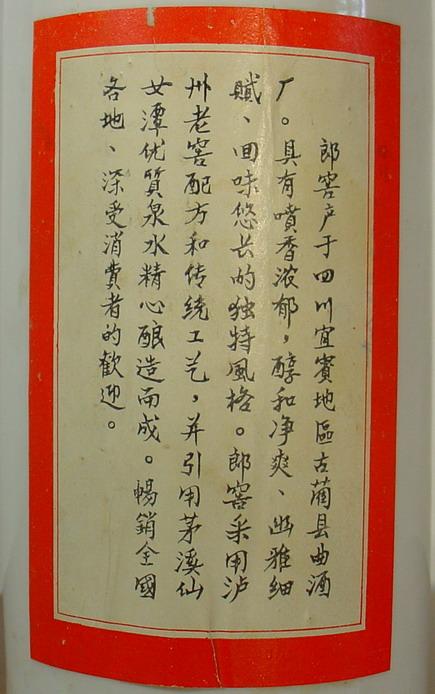 郎窖产于四川宜賓地區古藺县曲酒
厂。具有噴香浓郁，醇和净爽、幽雅细
膩、回味悠长的独特風格。郎窖采用泸
州老窖配方和传统工艺，并引用茅溪仙
女潭优質泉水精心酿造而成。暢銷全國
各地、深受消費者的歡迎。